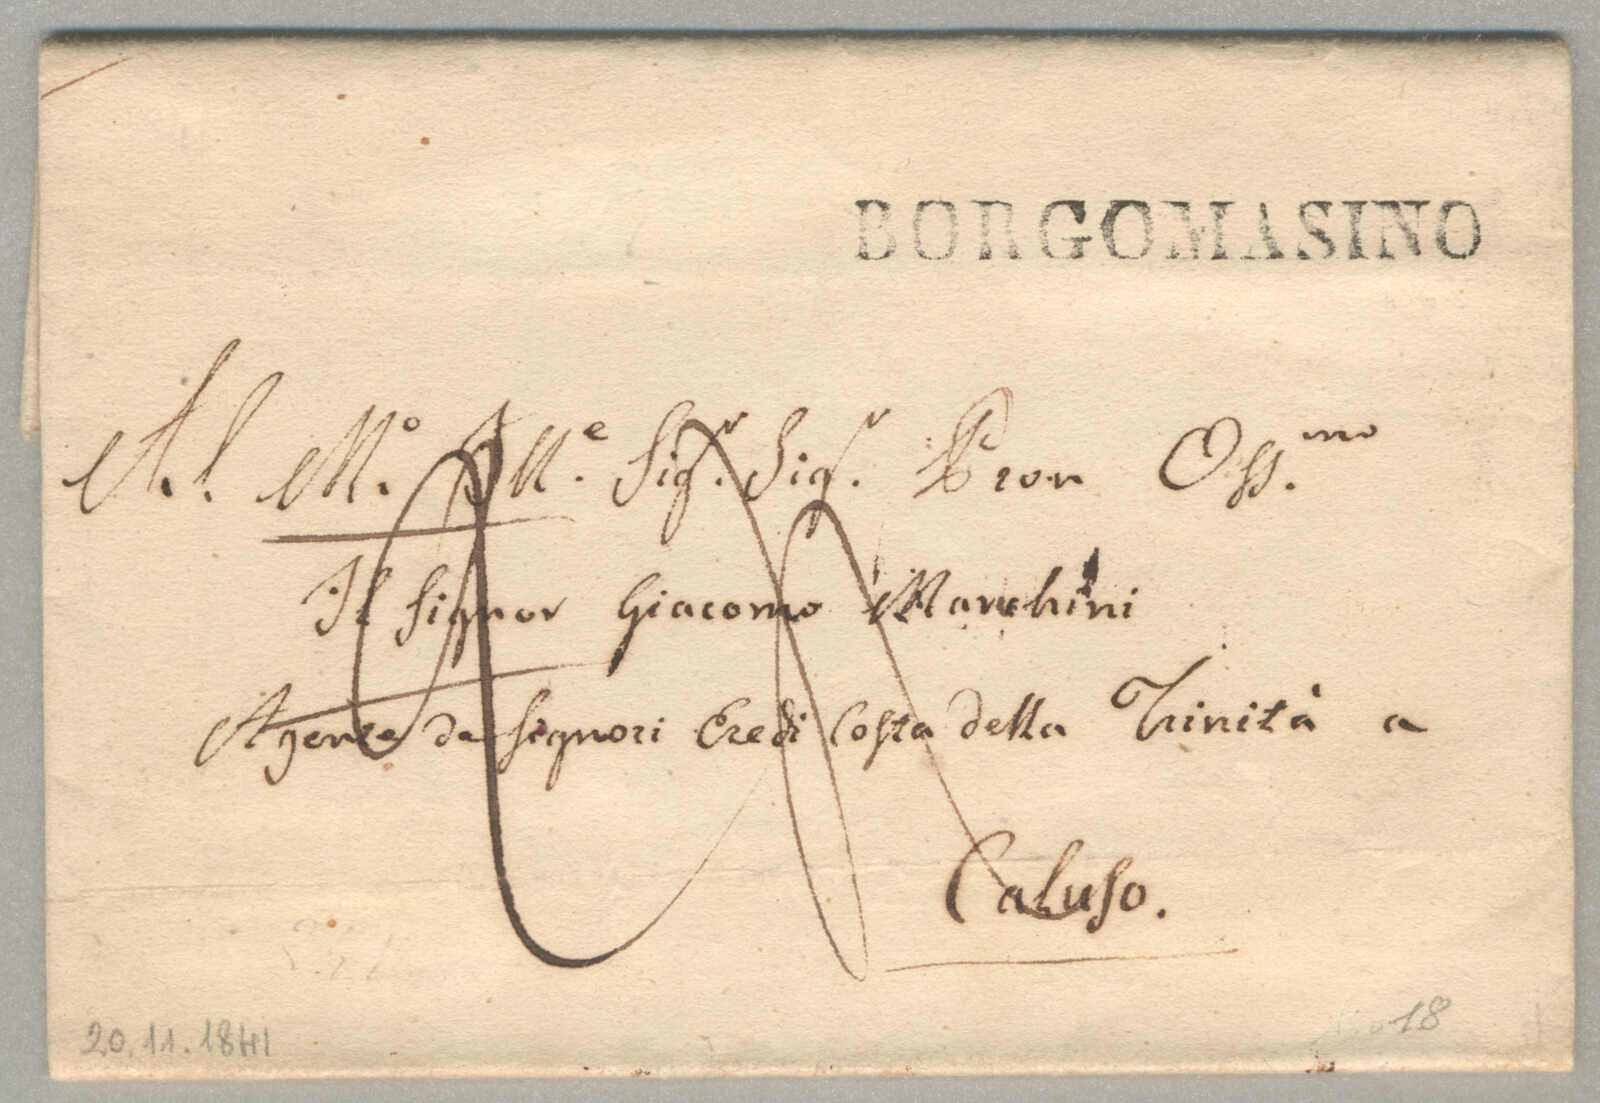 BORGOMASINO
Al M.º Ill.e Sig.r Sig.r Pron Oss.mo
Il Signor Giacomo Marchini
Agente de Signori Eredi Costa della Trinità a
Caluso.
20.11.1841
18